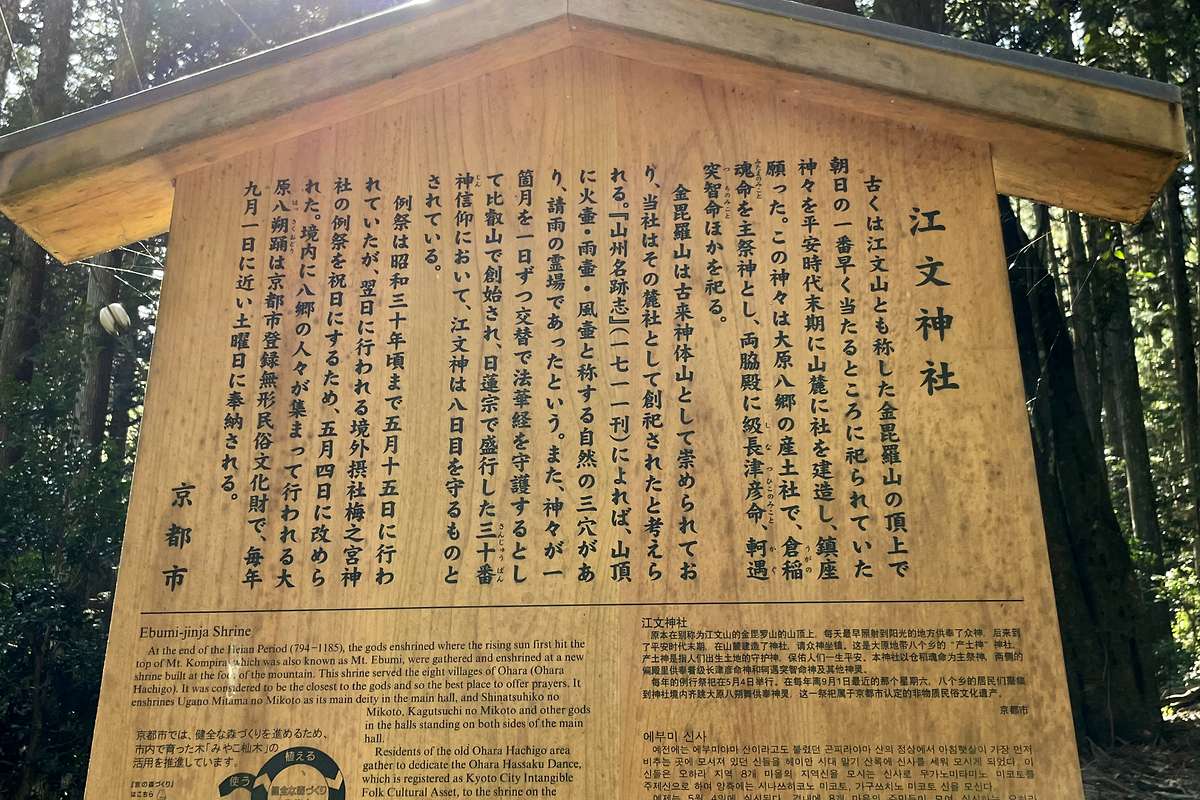 江文神社
古くは江文山とも称した金毘羅山の頂上で
朝日の一番早く当たるところに祀られていた
神々を平安時代末期に山麓に社を建造し、鎮座
願った。この神々は大原八郷の産土社で、倉稲
魂命を主祭神とし、両脇殿に級長津彦命、軻遇
突智命ほかを祀る。
金毘羅山は古来神体山として崇められてお
り、当社はその麓社として創祀されたと考えら
れる。『山州名跡志』(一七一一刊)によれば、山頂
に火壷・雨壷・風壷と称する自然の三穴があ
り、請雨の霊場であったという。また、神々が一
箇月を一日ずつ交替で法華経を守護するとし
て比叡山で創始され、日蓮宗で盛行した三十番
神信仰において、江文神は八日目を守るものと
されている。
例祭は昭和三十年頃まで五月十五日に行わ
れていたが、翌日に行われる境外摂社梅之宮神
社の例祭を祝日にするため、五月四日に改めら
れた。境内に八郷の人々が集まって行われる大
原八朔踊は京都市登録無形民俗文化財で、毎年
九月一日に近い土曜日に奉納される。
京都市
Ebumi-jinja Shrine
At the end of the Heian Period (794–1185), the gods enshrined where the rising sun first hit the
top of Mt. Kompira, which was also known as Mt. Ebumi, were gathered and enshrined at a new
shrine built at the foot of the mountain. This shrine served the eight villages of Ohara (Ohara
Hachigo). It was considered to be the closest to the gods and so the best place to offer prayers. It
enshrines Ugano Mitama no Mikoto as its main deity in the main hall, and Shinatsuhiko no
Mikoto, Kagutsuchi no Mikoto and other gods
in the halls standing on both sides of the main
hall.
Residents of the old Ohara Hachigo area
gather to dedicate the Ohara Hassaku Dance,
which is registered as Kyoto City Intangible
Folk Cultural Asset, to the shrine on the
京都市では、健全な森づくりを進めるため、
市内で育った木「みやこ杣木」の
活用を推進しています。
植える
使う
健全な森づくり
「京の森づくり」
はこちら
江文神社
原本在别称为江文山的金毘罗山的山顶上，每天最早照射到阳光的地方供奉了众神，后来到
了平安时代末期，在山麓建造了神社，请众神坐镇。这是大原地带八个乡的“产土神”神社。
产土神是指人们出生土地的守护神，保佑人们一生平安。本神社以仓稻魂命为主祭神，两侧的
偏殿里供奉着级长津彦命神和轲遇突智命神及其他神灵。
每年的例行祭祀在5月4日举行。在每年离9月1日最近的那个星期六，八个乡的居民们聚集
到神社境内齐跳大原八朔舞供奉神灵，这一祭祀属于京都市认定的非物质民俗文化遗产。
京都市
에부미 신사
예전에는 에부미야마 산이라고도 불렸던 곤피라야마 산의 정상에서 아침햇살이 가장 먼저
비추는 곳에 모셔져 있던 신들을 헤이안 시대 말기 산록에 신사를 세워 모시게 되었다. 이
신들은 오하라 지역 8개 마을의 지역신을 모시는 신사로 우가노미타마노 미코토를
주제신으로 하며 양측에는 시나쓰히코노 미코토, 가구쓰치노 미코토 신을 모신다.